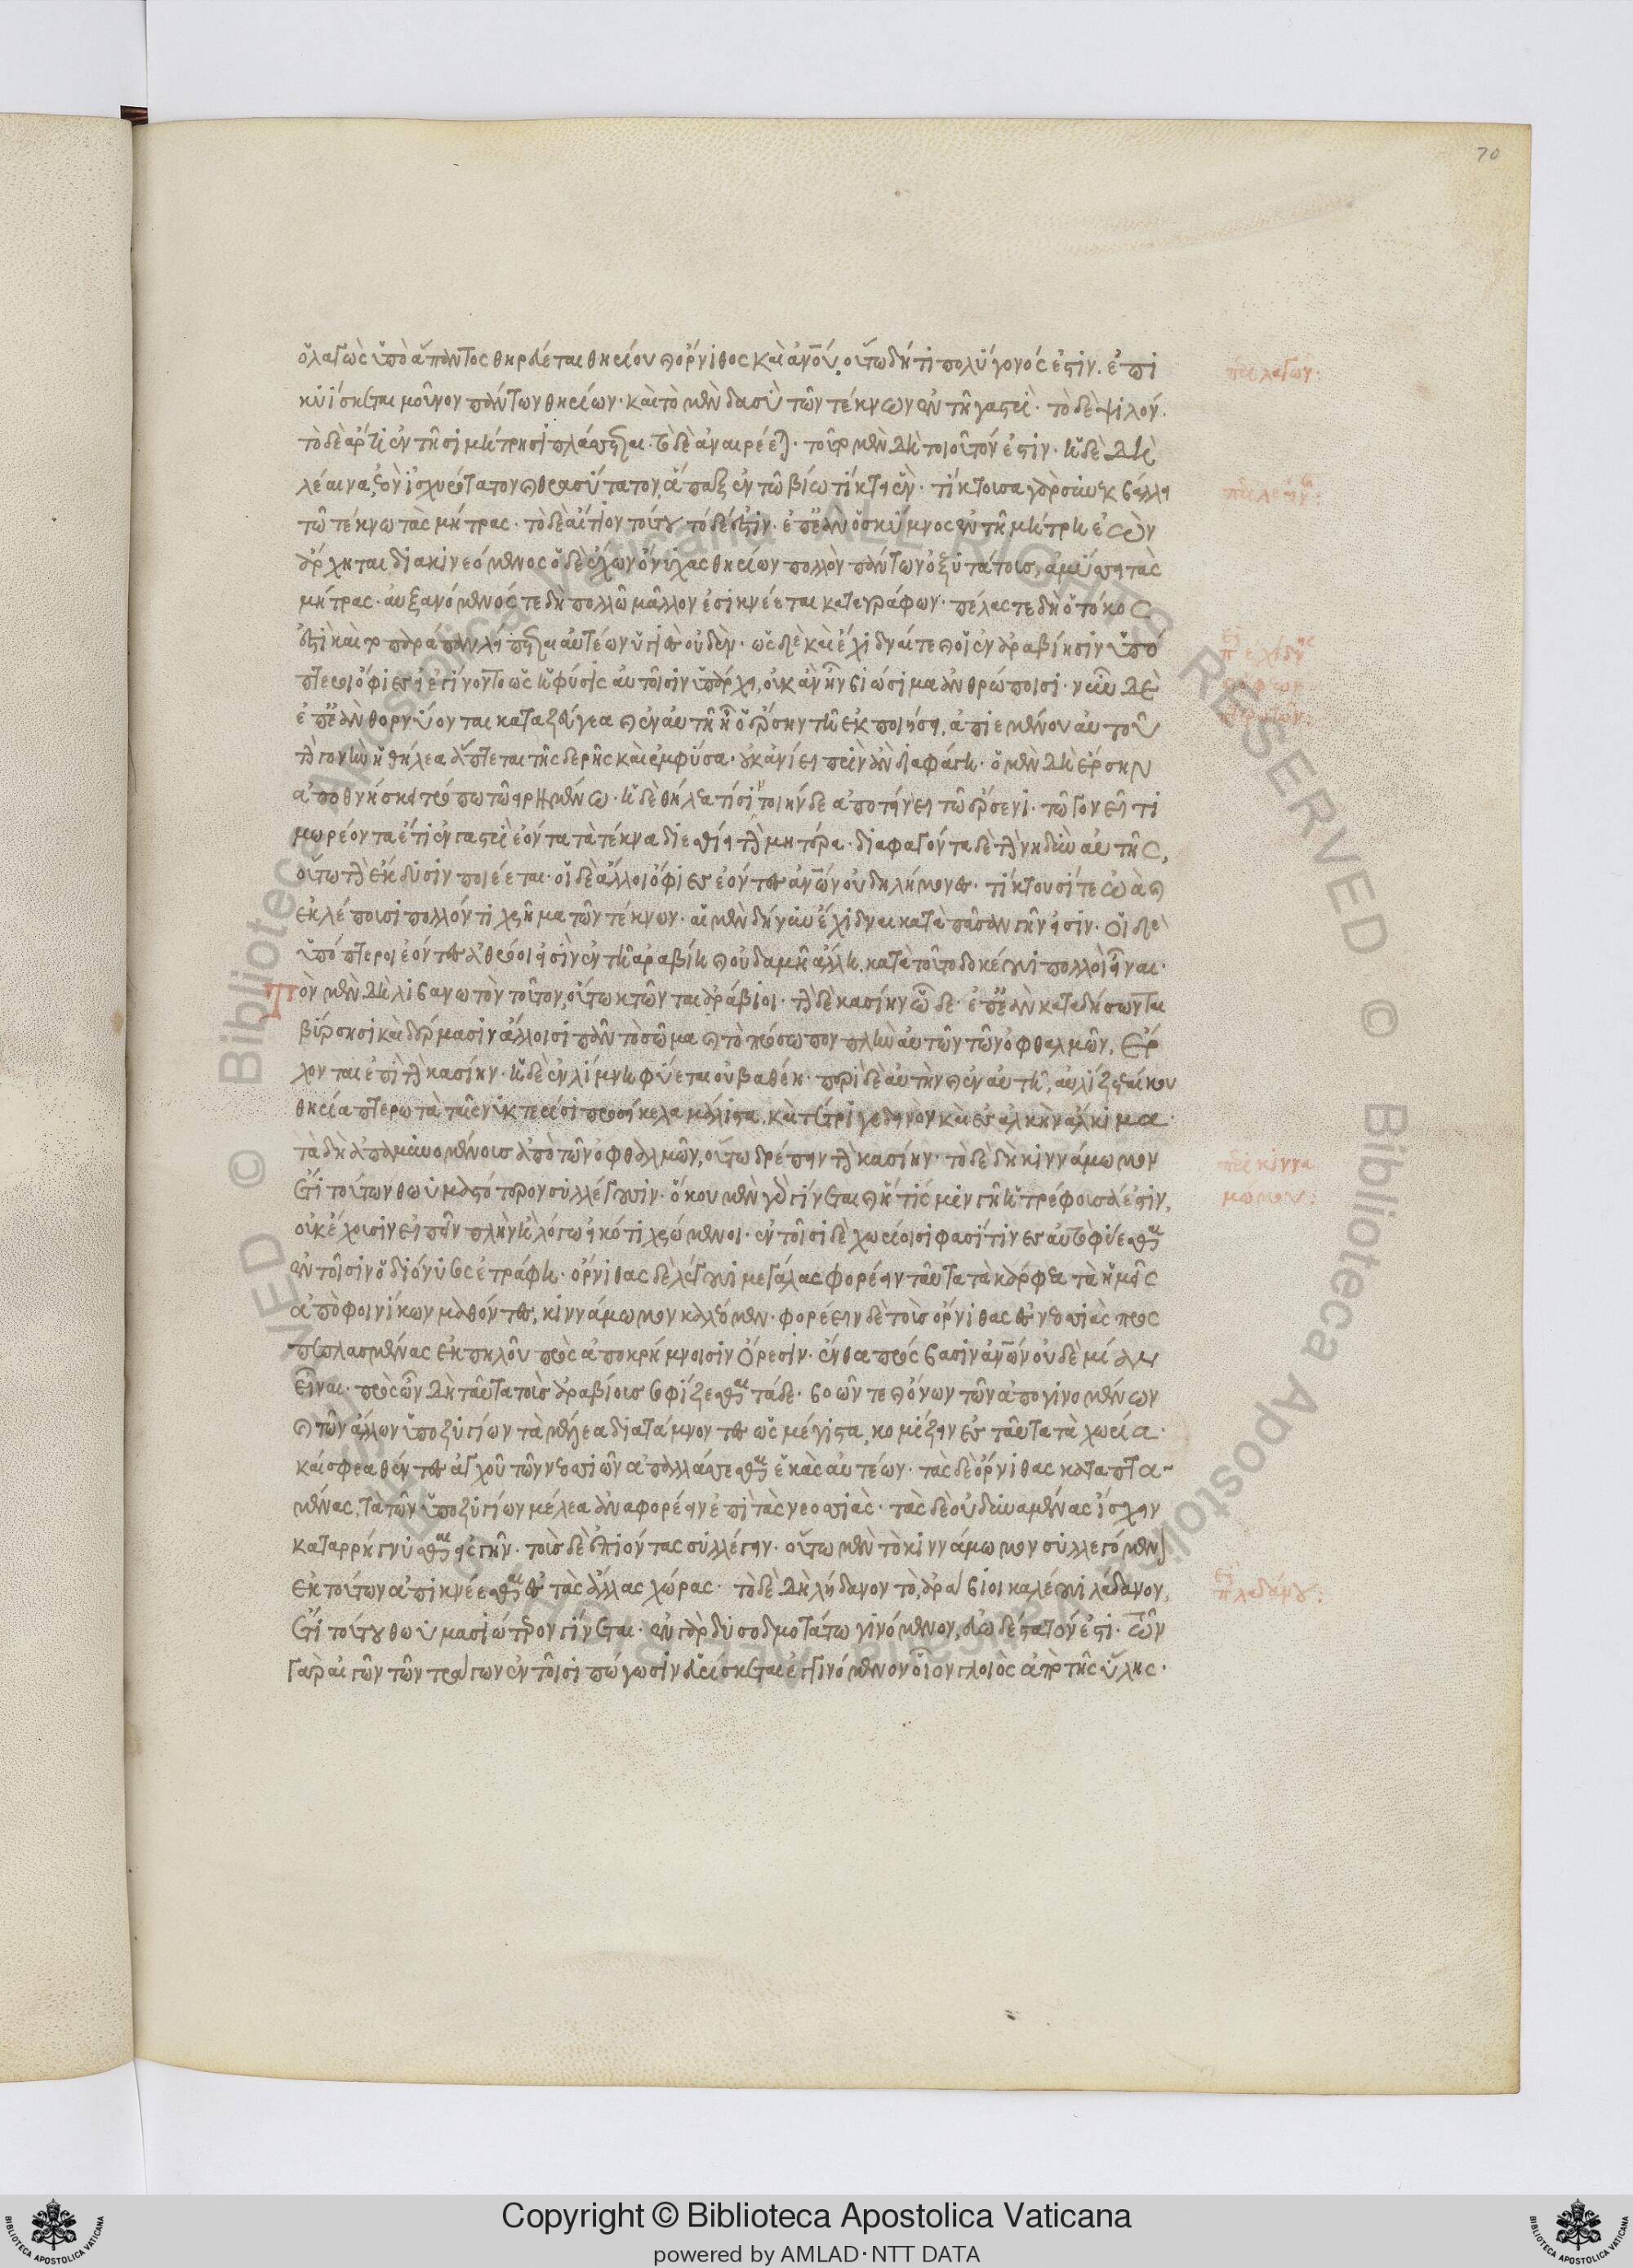 70
ὁ λαγὼς ὑπὸ ἅπαντος θηρεύεται θηρίου καὶ ὄρνιθος καὶ ἀνου· οὕτω δή τι πολύγονός ἐστιν. ἐπι
κυίσκεται μοῦνον πάντων θηρίων· καὶ τὸ μὲν δασὺ τῶν τέκνων ἐν τῇ γαστρί· τὸ δὲ ψιλόν.
τὸ δὲ ἄρτι ἐν τῇσι μήτρῃσι πλάσσεται· τὸ δὲ ἀναιρέεται· τοῦτο μὲν δὴ τοιοῦτόν ἐστιν. ἡ δὲ δὴ
λέαινα, ἐὸν ἰσχυρότατον καὶ θρασύτατον, ἅπαξ ἐν τῷ βίῳ τίκτει ἕν· τίκτουσα γὰρ συνεκβάλλει
τῷ τέκνῳ τὰς μήτρας· τὸ δὲ αἴτιον τούτου τόδε ἐστίν· ἐπεὰν ὁ σκύμνος ἐν τῇ μήτρῃ ἐὼν
ἄρχηται διακινεόμενος ὁ δὲ ἔχων ὄνυχας θηρίων πολλὸν πάντων ὀξυτάτους, ἀμύσσει τὰς
μήτρας· αὐξανόμενός τε δὴ πολλῷ μᾶλλον ἐσικνέεται καταγράφων· πέλας τε δὴ ὁ τόκος
ἐστὶ καὶ τὸ παράπαν λείπεται αὐτέων ὑγιὲς οὐδέν· ὣς δὲ καὶ ἔχιδναί τε καὶ οἱ ἐν ἀραβίῃσιν ὑπό
πτεροι ὄφιες εἰ ἐγίνοντο ὡς ἡ φύσις αὐτοῖσιν ὑπάρχει, οὐκ ἂν ἦν βιώσιμα ἀνθρώποισι· νῦν δὲ
ἐπεὰν θορνύωνται κατὰ ζεύγεα καὶ ἐν αὐτῇ ᾖ ὁ ἄρσην τῇ ἐκποιήσει, ἀπιεμένου αὐτοῦ
τὴν γονὴν ἡ θήλεα ἅπτεται τῆς δερῆς καὶ ἐμφῦσα· οὐκ ἀνίει πρὶν ἂν διαφάγῃ· ὁ μὲν δὴ ἔρσην
ἀποθνήσκει τρόπῳ τῷ εἰρημένῳ· ἡ δὲ θήλεα τίσιν τοιήνδε ἀποτίνει τῷ ἄρσενι· τῷ γονεῖ τι
μωρέοντα ἔτι ἐν γαστρὶ ἐόντα τὰ τέκνα διεσθίει τὴν μητέρα· διαφαγόντα δὲ τὴν νηδὺν αὐτῆς,
οὕτω τὴν ἔκδυσιν ποιέεται· οἱ δὲ ἄλλοι ὄφιες ἐόντες ἀνων οὐ δηλήμονες· τίκτουσί τε ᾠὰ καὶ
ἐκλέπουσι πολλόν τι χρῆμα τῶν τέκνων· αἱ μὲν δή νυν ἔχιδναι κατὰ πᾶσαν γῆν εἰσίν· οἱ δὲ
ὑπόπτεροι ἐόντες ἀθρόοι εἰσὶν ἐν τῇ ἀραβίῃ καὶ οὐδαμῇ ἄλλῃ, κατὰ τοῦτο δοκέουσι πολλοὶ εἶναι·
Τὸν μὲν δὴ λιβανωτὸν τοῦτον, οὕτω κτῶνται ἀράβιοι· τὴν δὲ κασίην ὧδε· ἐπεὰν καταδήσωνται
βύρσῃσι καὶ δέρμασιν ἄλλοισι πᾶν τὸ σῶμα καὶ τὸ πρόσωπον πλὴν αὐτῶν τῶν ὀφθαλμῶν, ἔρ
χονται ἐπὶ τὴν κασίην· ἡ δὲ ἐν λίμνῃ φύεται οὐ βαθέῃ· περὶ δὲ αὐτὴν καὶ ἐν αὐτῇ, αὐλίζεταί κου
θηρία πτερωτὰ τῇσι νυκτερίσι προσείκελα μάλιστα, καὶ τέτριγε δεινὸν καὶ ἐς ἀλκὴν ἄλκιμα·
τὰ δὴ ἀπαμυνομένους ἀπὸ τῶν ὀφθαλμῶν, οὕτω δρέπειν τὴν κασίην· τὸ δὲ δὴ κιννάμωμον
ἔτι τούτων θωυμαστότερον συλλέγουσιν· ὅκου μὲν γὰρ γίνεται καὶ ἥτις μιν γῆ ἡ τρέφουσά ἐστιν,
οὐκ ἔχουσιν εἰπεῖν πλὴν ἢ λόγῳ εἰκότι χρεώμενοι· ἐν τοῖσι δὲ χωρίοισι φασί τινες αὐτὸ φύεσθαι
ἐν τοῖσιν ὁ διόνυσος ἐτράφη· ὄρνιθας δὲ λέγουσι μεγάλας φορέειν ταῦτα τὰ κάρφεα τὰ ἡμεῖς
ἀπὸ φοινίκων μαθόντες, κιννάμωμον καλέομεν· φορέειν δὲ τοὺς ὄρνιθας ἐς νεοσσιὰς προς
πεπλασμένας ἐκ πηλοῦ πρὸς ἀποκρήμνοισιν ὄρεσιν· ἔνθα πρόσβασιν ἀνων οὐδεμίαν
εἶναι· πρὸς ὦν δὴ ταῦτα τοὺς ἀραβίους σοφίζεσθαι τάδε· βοῶν τε καὶ ὄνων τῶν ἀπογινομένων
καὶ τῶν ἄλλων ὑποζυγίων τὰ μέλεα διαταμνοντες ὡς μέγιστα, κομίζειν ἐς ταῦτα τὰ χωρία·
καί σφεα θέντες ἀγχοῦ τῶν νεοσσιῶν ἀπαλλάσσεσθαι ἑκὰς αὐτέων· τὰς δὲ ὄρνιθας καταπτα-
μένας, τὰ τῶν ὑποζυγίων μέλεα ἀναφορέειν ἐπὶ τὰς νεοσσιάς· τὰς δὲ οὐ δυναμένας ἴσχειν
καταρρήγνυσθαι εἰς γῆν· τοὺς δὲ ἐπιόντας συλλέγειν· οὕτω μὲν τὸ κιννάμωμον συλλεγόμενον
ἐκ τούτων ἀπικνέεσθαι ἐς τὰς ἄλλας χώρας· τὸ δὲ δὴ λήδανον τὸ, ἀράβιοι καλέουσι λάδανον,
ἔτι τούτου θωυμασιώτερον γίνεται· ἐν γὰρ δυσοδμοτάτῳ γινόμενον, εὐωδέστατόν ἐστι· τῶν
γὰρ αἰγῶν τῶν τράγων ἐν τοῖσι πώγωσιν εὑρίσκεται ἐγγινόμενον οἷον γλοιὸς ἀπὸ τῆς ὕλης·
περὶ λαγῶν:
περὶ κιννα
μώμου:
περὶ λαδάνου:
Copyright © Biblioteca Apostolica Vaticana
powered by AMLAD·NTT DATA